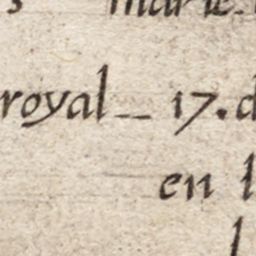 marie
royal__ 17. d
en l
l